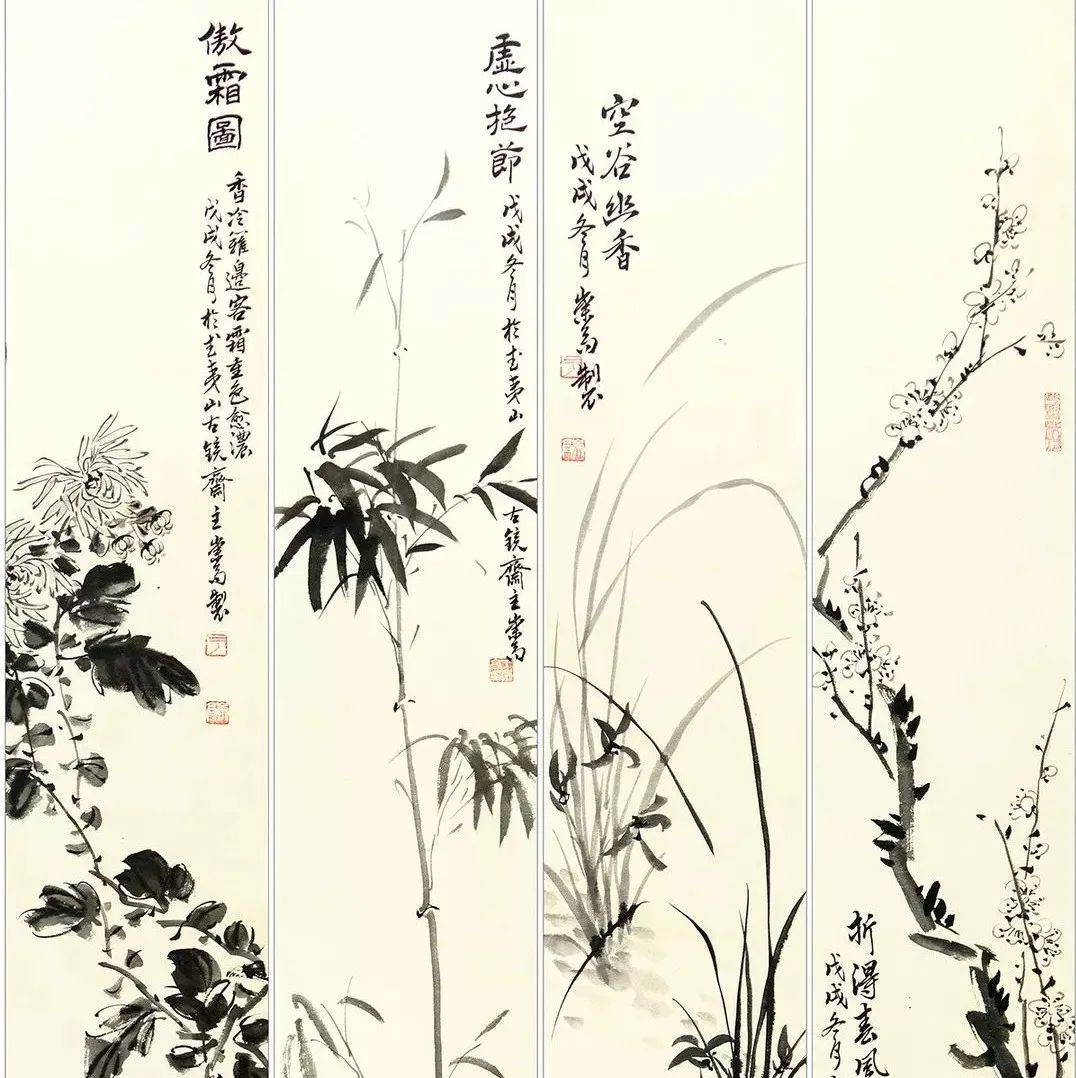 折得春風
戊戌冬月
空谷幽香
戊戌冬月 製
虛心抱節
戊戌冬月於武夷山
古镜齋主
傲霜圖
香冷籬邊客霜重色愈濃
戊戌冬月於武夷山古镜齋主 製